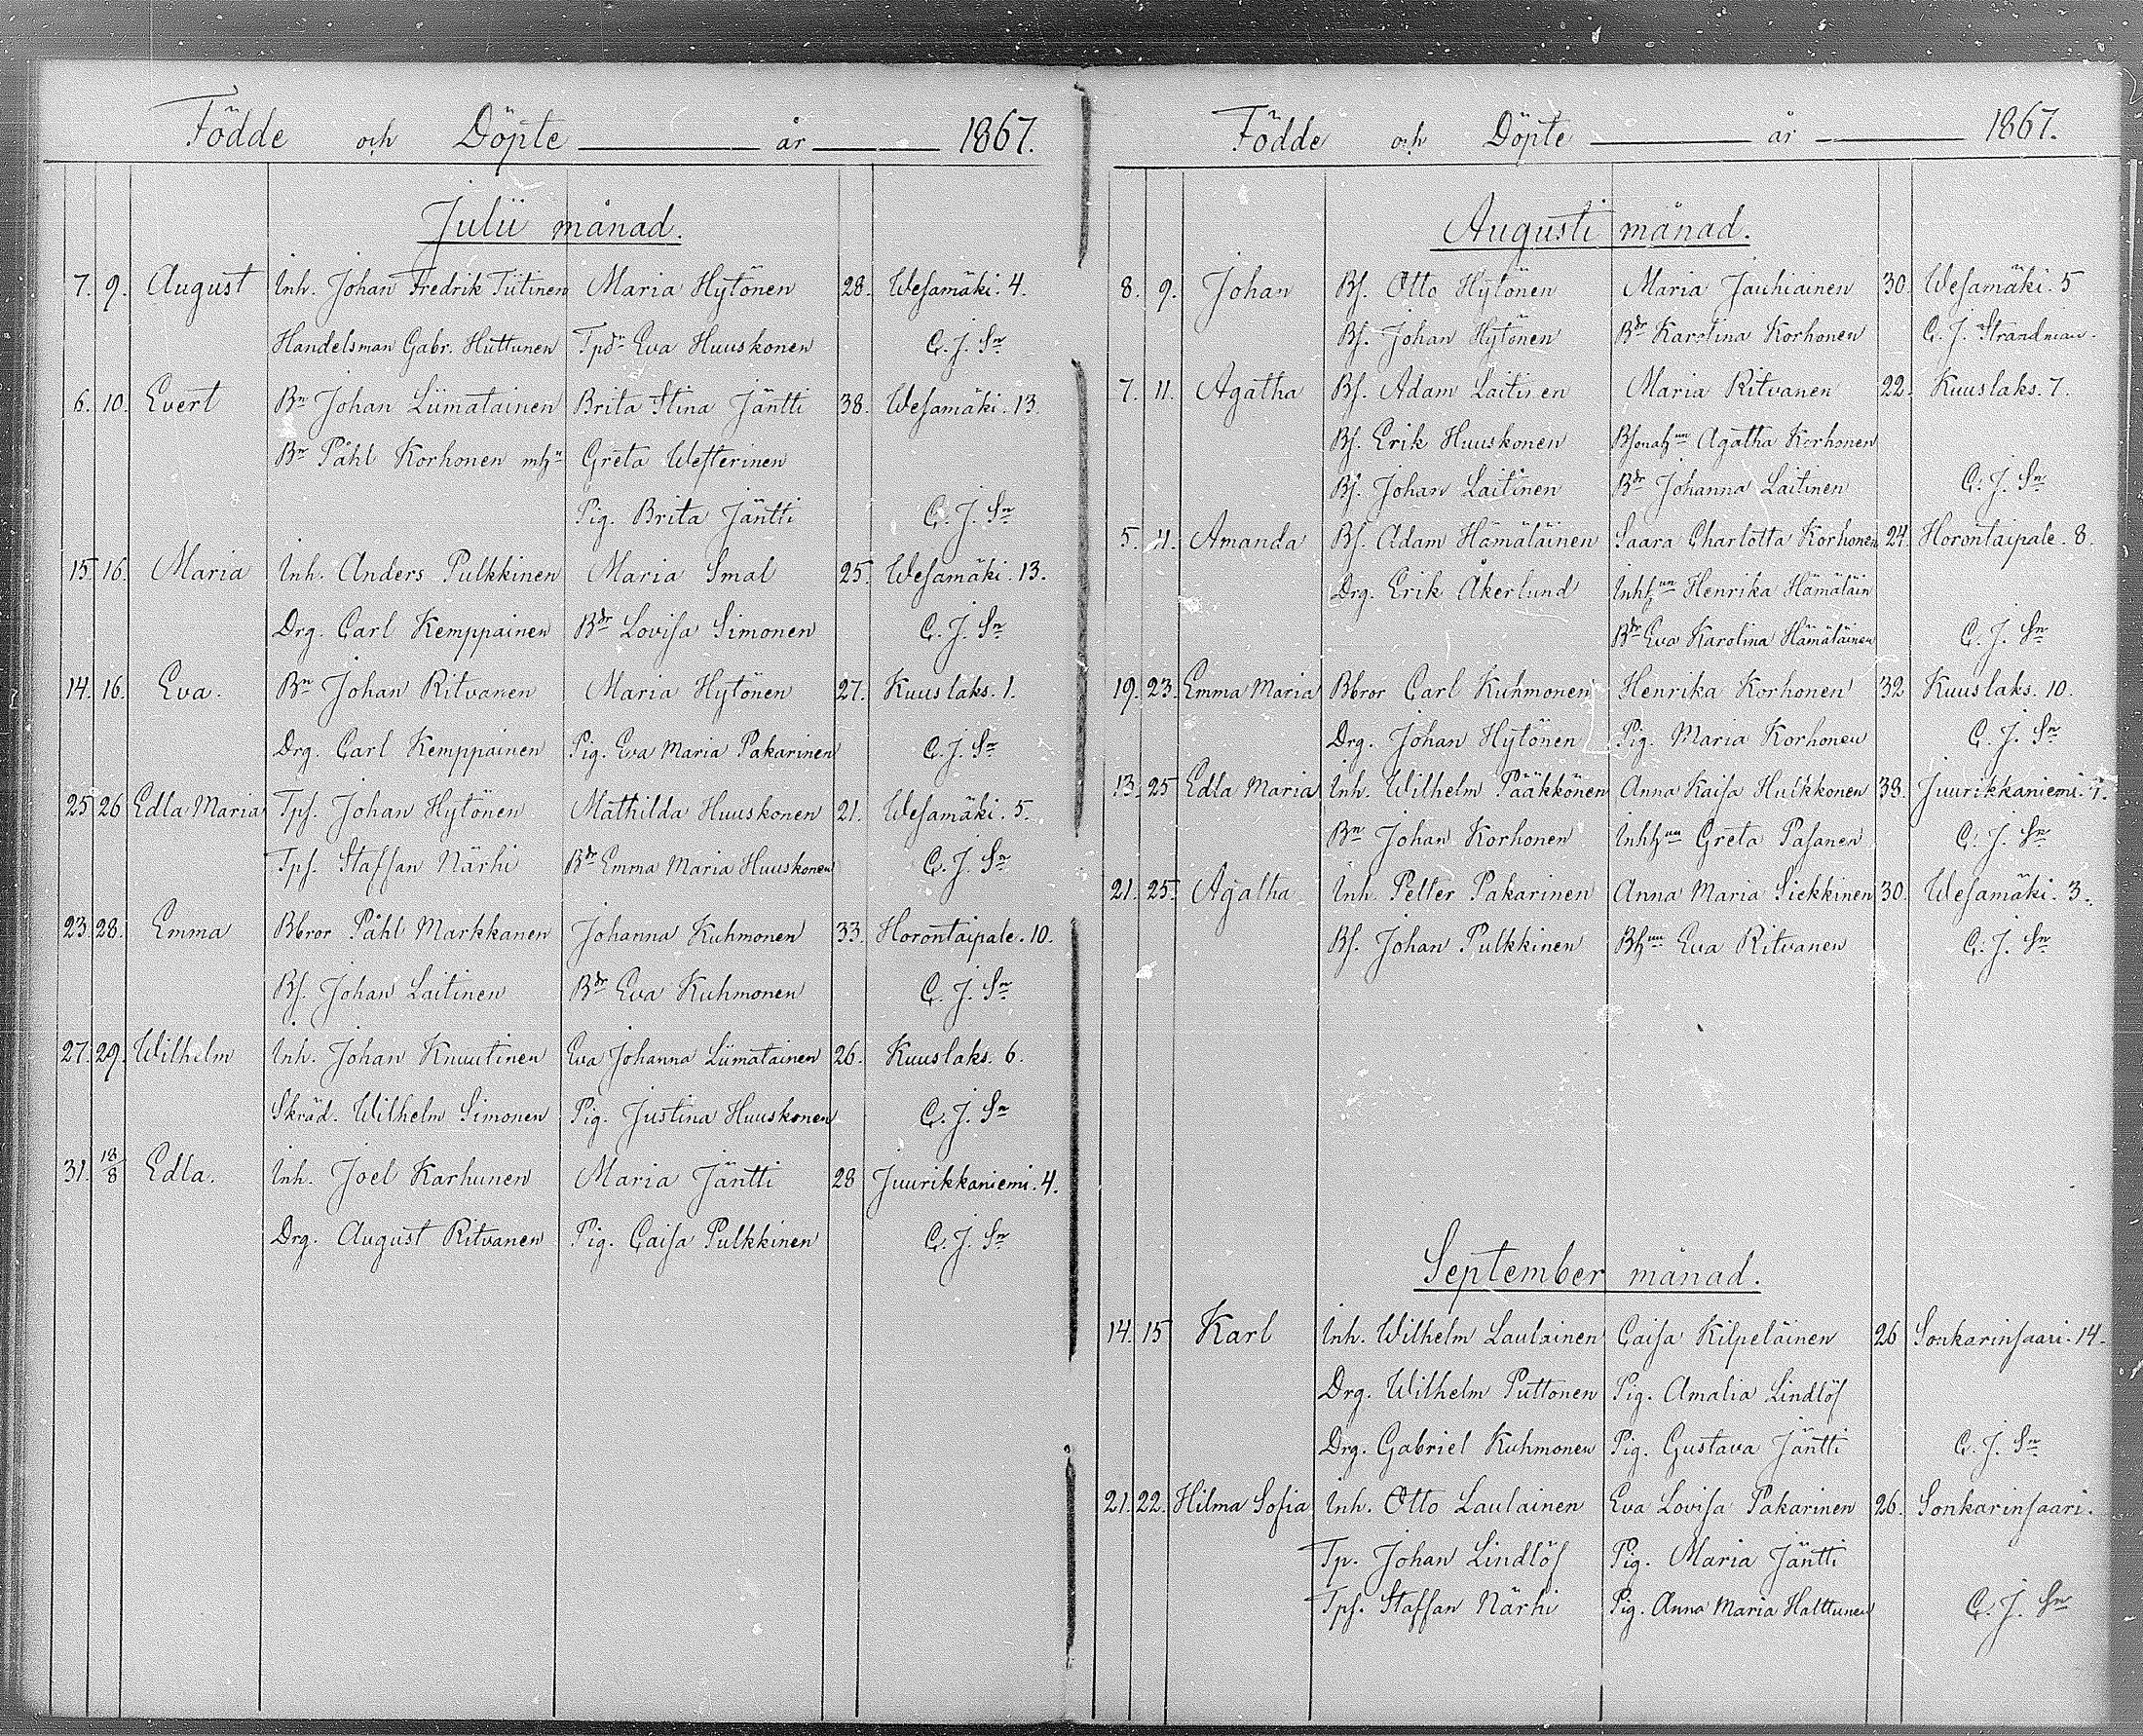 Födde och Döpte år 1867.
Julii månad.
7. 9. August Inh. Johan Fredrik Tiitinen Maria Hytönen 28. Wesamäki. 4.
Handelsman Gabr. Huttunen Tpdr Eva Huuskonen C. J. Sn
6. 10. Evert Bn Johan Liimatainen Brita Stina Jäntti 38. Wesamäki. 13.
Bn Påhl Korhonen mhn Greta Westerinen
Pig. Brita Jäntti C. J. Sn
15. 16. Maria Inh. Anders Pulkkinen Maria Smal 25. Wesamäki. 13.
Drg. Carl Kemppainen Bdr Lovisa Simonen C. J. Sn
14. 16. Eva. Bn Johan Ritvanen Maria Hytönen 27. Kuuslaks. 1.
Drg. Carl Kemppainen Pig. Eva Maria Pakarinen C. J. Sn
25 26 Edla Maria Tps. Johan Hytönen Mathilda Huuskonen 21. Wesamäki. 5.
Tps. Staffan Närhi Bdr Emma Maria Huuskonen C. J. Sn
23. 28. Emma Bbror Påhl Markkanen Johanna Kuhmonen 33. Horontaipale. 10.
Bs. Johan Laitinen Bdr Eva Kuhmonen C. J. Sn
27. 29. Wilhelm Inh. Johan Knuutinen Eva Johanna Liimatainen 26. Kuuslaks. 6.
Skräd. Wilhelm Simonen Pig. Justina Huuskonen C. J. Sn
31. 18/8 Edla. Inh. Joel Karhunen Maria Jäntti 28 Juurikkaniemi. 4.
Drg. August Ritvanen Pig. Caisa Pulkkinen C. J. Sn
Födde och Döpte år 1867.
Augusti månad.
8. 9. Johan Bs. Otto Hytönen Maria Jauhiainen 30. Wesamäki. 5
Bs. Johan Hytönen Bdr Karolina Korhonen C. J. Strandman.
7. 11. Agatha Bs. Adam Laitinen Maria Ritvanen 22. Kuuslaks. 7.
Bs. Erik Huuskonen Agatha Korhonen
Bs. Johan Laitinen Bdr Johanna Laitinen C. J. Sn
5. 11. Amanda Bs. Adam Hämäläinen Saara Charlotta Korhonen 24. Horontaipale. 8.
Drg. Erik Åkerlund Inhhun Henrika Hämäläin
Bdr Eva Karolina Hämäläinen C. J. Sn
19. 23. Emma Maria Bbror Carl Kuhmonen Henrika Korhonen 32 Kuuslaks. 10.
Drg. Johan Hytönen Pig. Maria Korhonen C. J. Sn
13. 25 Edla Maria Inh. Wilhelm Pääkkönen Anna Kaisa Hulkkonen 38. Juurikkaniemi. 7.
Bn Johan Korhonen Inhhun Greta Pasanen C. J. Sn
21. 25. Agatha Inh. Petter Pakarinen Anna Maria Siekkinen 30. Wesamäki. 3.
Bs. Johan Pulkkinen Bhun Eva Ritvanen C. J. Sn
September månad.
14. 15 Karl Inh. Wilhelm Laulainen Caisa Kilpeläinen 26 Sonkarinsaari. 14.
Drg. Wilhelm Puttonen Pig. Amalia Lindlöf
Drg. Gabriel Kuhmonen Pig. Gustava Jäntti C. J. Sn
21. 22. Hilma Sofia Inh. Otto Laulainen Eva Lovisa Pakarinen 26. Sonkarinsaari.
Tp. Johan Lindlöf Pig. Maria Jäntti
Tps. Staffan Närhi Pig. Anna Maria Halttunen C. J. Sn